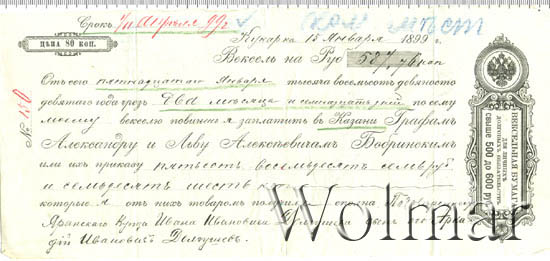 Срокъ 7го Апреля 99 г
(кон мѣст
ЦѢНА 80 КОП.
Кукарка 15 Января 1899 г.
Вексель на Руб 587, 76 коп
№ 150
Отъ сего пятнадцатаго Января тысяча восемьсотъ девяносто
девятаго года чрезъ два мѣсяца и семнадцать дней по сему
моему векселю повиненъ я заплатить въ Казани Графамъ
Александру и Льву Алексѣевичамъ Бобринскимъ
или ихъ приказу пятьсотъ восемьдесятъ семь руб
и семьдесятъ шесть
которые я отъ нихъ товаромъ получилъ сполна
Яранскаго Купца Ивана Ивановича
дій Ивановичъ Долгушевъ
ВЕКСЕЛЬНАЯ БУМАГА
ДЛЯ ЛИЧНЫХЪ
ДОЛГОВЫХЪ ОБЯЗАТЕЛЬСТВЪ
СВЫШЕ 500 ДО 600 РУБ.
Wolmar